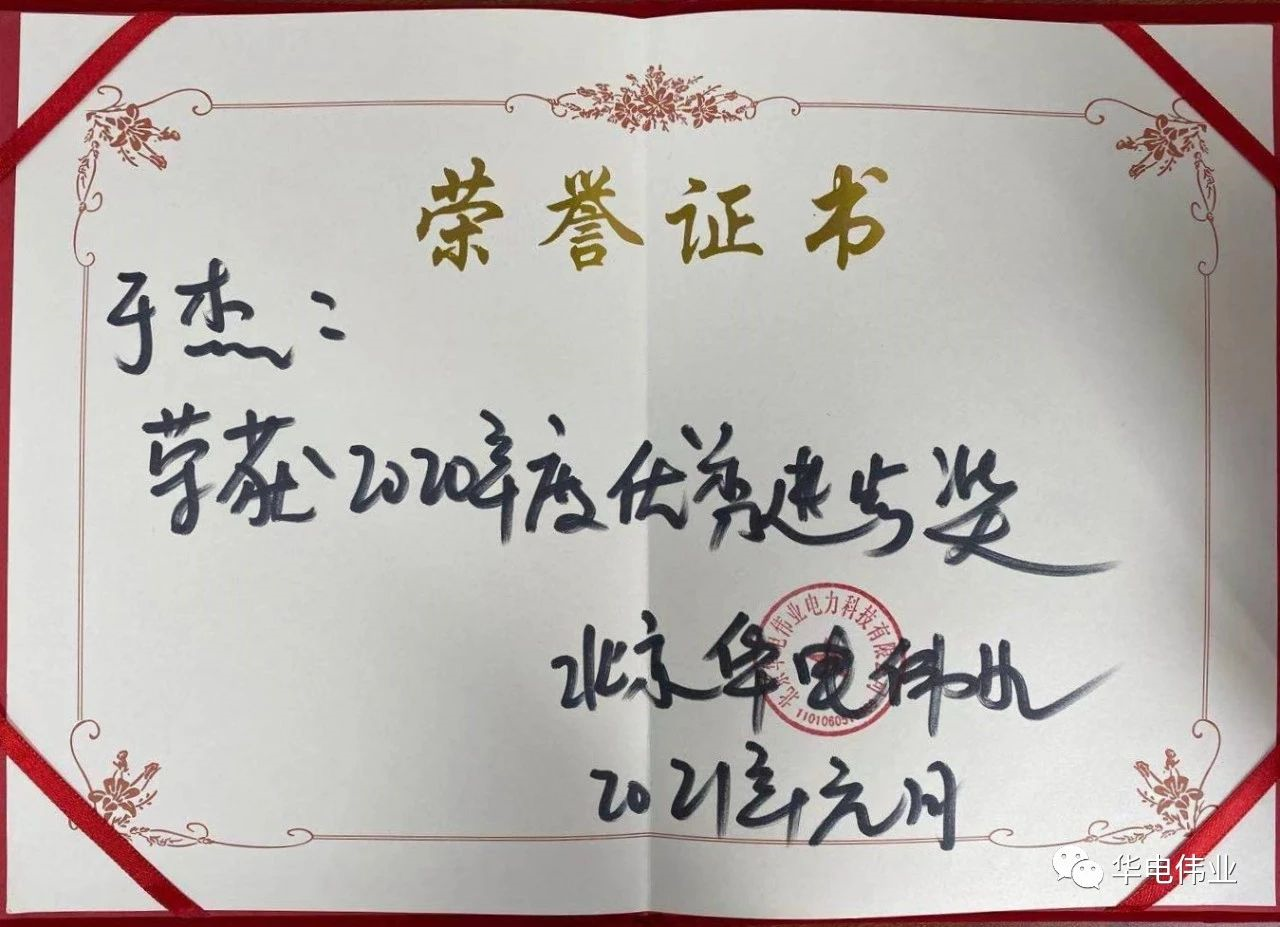 荣誉证书
于杰：
荣获2020年度优秀进步奖
北京华电伟业
北京华电伟业电力科技有限公司
2021年元月
华电伟业